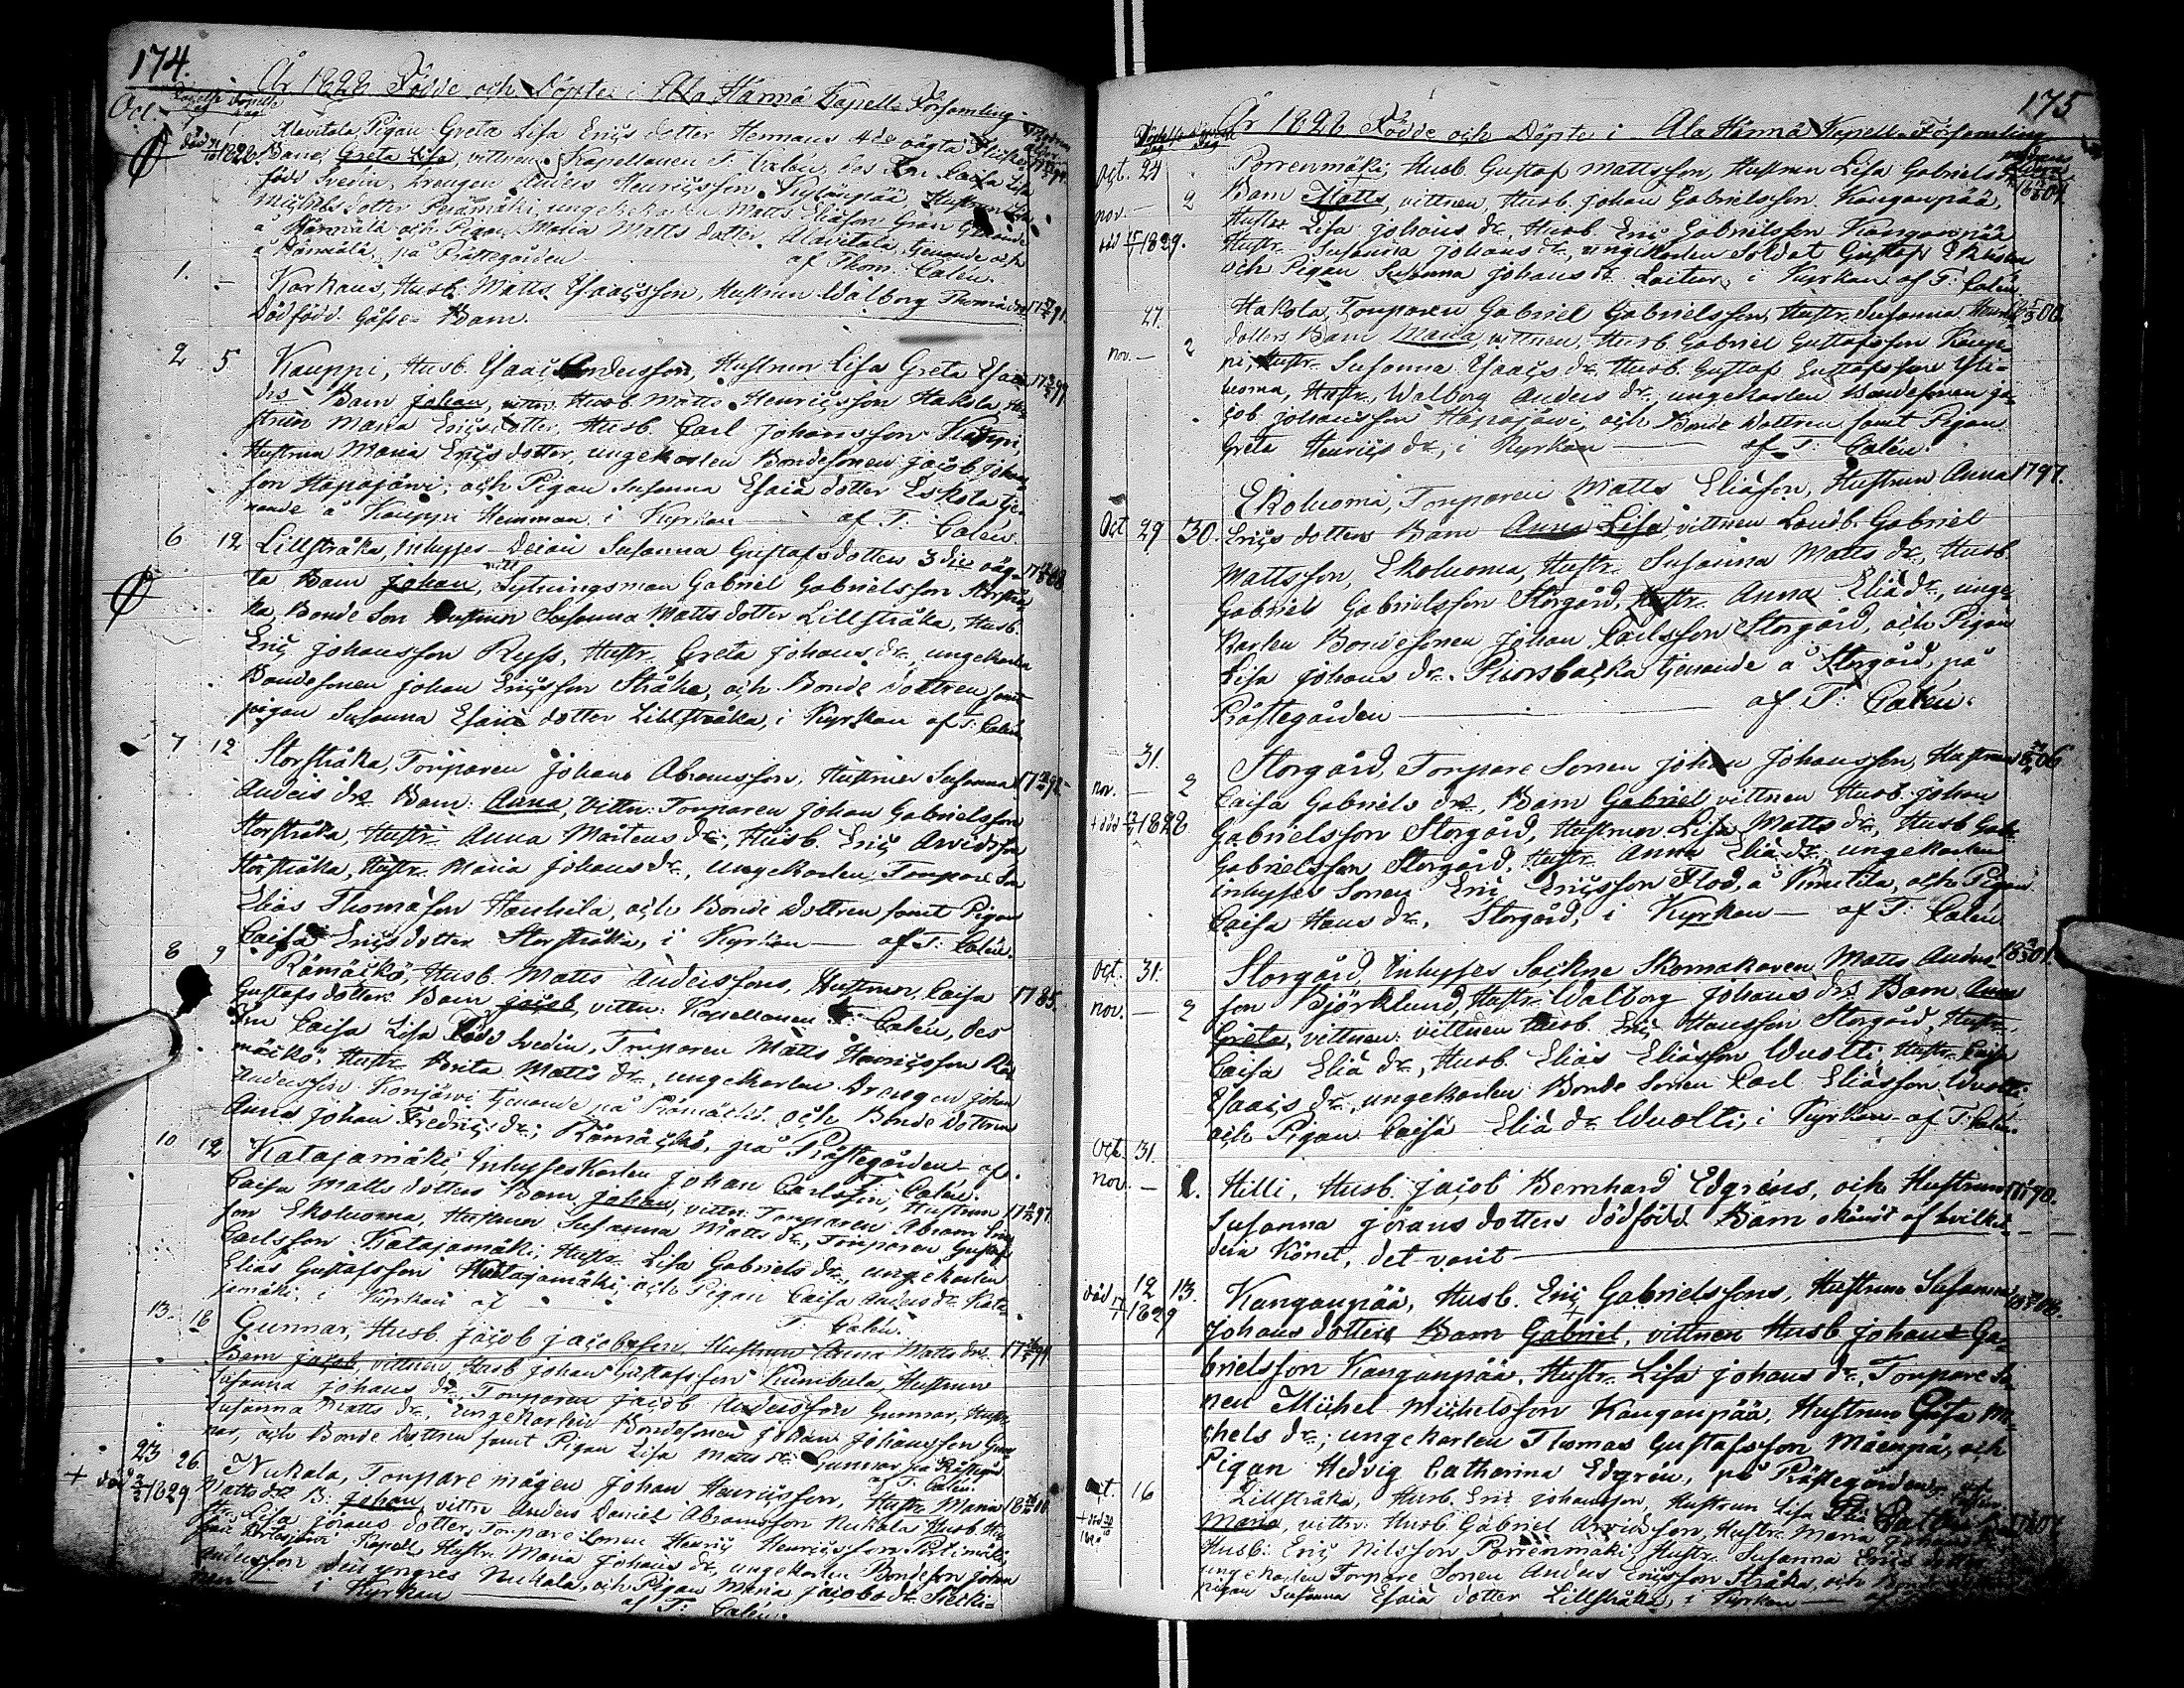 174.
År 1828 Födde och Döpte i Ala Härmä Kapells Församling.
Oct. Födelse dag Döpelse dag
Alavitala, Pigan Greta Lisa Erics dotter Hermans 4de oägta
död 1828. Barn, Greta Lisa, vittnen Kapellanen T: Calén, des Fru Caisa Lisa
född Svedin, Drengen Anders Henricsson
Michels dotter Perämäki, ungekarlen Matts Eliasson Grän
å Härmälä och Pigan Maria Matts dotter Alavitala, tjenande
å Härmälä, på Prästegården af Thom: Calén.
1. - Karhaus, Husb. Matts Isaacsson, Hustrun Walborg Thomæ dr 1791.
Dödfödd Gosse-Barn.
2 5 Kauppi, Husb. Isaac Andersson, Hustrun Lisa Greta Esaiæ 1799
drs Barn Johan, vittn. Husb. Matts Henricsson Hakola, Hu-
strun Maria Ericsdotter, Husb. Carl Johansson Kauppi,
Hustrun Maria Ericsdotter, ungekarlen Bondesonen Jacob Johans-
son Hapajärvi, och Pigan Susanna Esaiæ dotter Eskola tje-
nande å Kauppi Hemman i Kyrkan — af T: Calén.
6 12 Lillstråka, Inhyses-Deian Susanna Gustafsdotters 3die oäg-
ta Barn Johan, vitt Sytningsman Gabriel Gabrielsson Storstrå-
ka, Bonde Son Hustrun Susanna Matts dotter Lillstråka, Husb.
Eric Johansson Ryss, Hustr. Greta Johans dr, ungekarlen
Bondesonen Johan Ericsson Stråka, och Bonde Dottren samt
pigan Susanna Esaiæ dotter Lillstråka, i Kyrkan af T: Calén
7 12 Storstråka, Torparen Johans Abramssons, Hustrun Susanna
Anders drs Barn: Anna, vittn: Torparen Johan Gabrielsson
Storstråka, Hustr. Anna Mårtens dr, Husb. Eric Arvidsson
Storstråka, Hustr. Maria Johans dr, ungekarlen Torpare Son
Elias Thomasson Hauhila, och Bonde Dottren samt Pigan
Caisa Ericsdotter Storstråka, i Kyrkan — af T: Calén.
8 9 Rämäckö, Husb. Matts Anderssons, Hustrun Caisa 1785.
Gustafs dotters Barn Jacob, vittn: Kapellanen T: Calén, des
Fru Caisa Lisa Född Svedin, Torparen Matts Henricsson Rä-
mäckö, Hustr. Brita Matts dr, ungekarlen Drengen Johan
Andersson Konjärvi tjenande på Rämäckö och Bonde Dottren
Anna Johan Fredrics dr, Rämäckö, på Prästegården af
T: Calén.
10 12 Katajamäki, Inhyses Karlen Johan Carlsson, Hustrun
Caisa Matts dotters Barn Johan, vittn: Torparen Abram Erics- 1797.
son Ekoluoma, Hustrun Susanna Matts dr, Torparen Gustaf
Carlsson Katajamäki, Hustr. Lisa Gabriels dr, ungekarlen
Elias Gustafsson Katajamäki, och Pigan Caisa Anders dr Kata-
jamäki, i Kyrkan af T: Calén.
13. 18 Gunnar, Husb. Jacob Jacobsson, Hustrun Anna Matts drs 1794
Barn Jacob, vittnen Husb Johan Gustafsson Kunikula, Hustrun
Susanna Johans dr, Torparen Jacob Andersson Gunnar, Hustr.
Susanna Matts dr, ungekarlen Bondesonen Johan Johansson Gun-
nar, och Bonde Dottren samt Pigan Lisa Matts dr Gunnar, på Prästegår
af T: Calén.
23 26. Nukala, Torpare mågen Johan Henricsson, Hustr. Maria
+ död 1829 Matts drs B: Johan, vittn Anders Daniel Abramsson Nukala
Lisa Jörans dotter, Torpare Sonen Henric Henricsson
Kapell, Hustr. Maria Johans dr, ungekarlen Bondeson Johan
Andersson den yngres Nukala, och Pigan Maria Jacobs dr
i Kyrkan — af T: Calén.
175
År 1828 Födde och Döpte i Ala Härmä Kapells Församling
Oct. 24 Porrenmäki, Husb. Gustaf Mattsson, Hustrun Lisa Gabriels 1804.
nov. — 2 Barn Matts, vittnen, Husb. Johan Gabrielsson Kanganpää,
Hustr. Lisa Johans dr, Husb. Eric Gabrielsson Kanganpää
död 1829. Hustr. Susanna Johans dr, ungekarlen Soldat Gustaf
och Pigan Susanna Johans dr i Kyrkan af T: Calén
27. Hakola, Torparen Gabriel Gabrielsson, Hustr. Susanna Henrics- 1800.
nov. — 2 dotters Barn Maria, vittnen, Husb. Gabriel Gustafsson Kaup-
pi, Hustr. Susanna Isaacs dr, Husb. Gustaf Gustafsson Yli-
uoma, Hustr. Walborg Anders dr, ungekarlen Bondesonen Ja-
cob Johansson Hapajärvi, och Bonde Dottren samt Pigan
Greta Henrics dr, i Kyrkan — af T: Calén.
Ekoluoma, Torparen Matts Eliasson, Hustrun Anna 1797.
Oct 29 30. Erics dotters Barn Anna Lisa, vittnen Landb. Gabriel
Mattsson, Ekoluoma, Hustr. Susanna Matts dr, Husb.
Gabriel Gabrielsson Storgård, Hustr. Anna Eliæ dr, unge
karlen Bondesonen Johan Carlsson Storgård, och Pigan
Lisa Johans dr, Pursbacka tjenande å Storgård, på
Prästegården — af T: Calén.
31. Storgård, Torpare Sonen Johan Johansson, Hustrun 1806
nov. — 2 Caisa Gabriels drs, Barn Gabriel, vittnen Husb. Johan
+ död 1828 Gabrielsson Storgård, Hustrun Lisa Matts dr, Husb Gab:
Gabrielsson Storgård, Hustr. Anna Eliæ dr, ungekarlen
inhyses Sonen Eric Ericsson Flod, å Knutila, och Pigan
Caisa Hans dr, Storgård, i Kyrkan — af T: Calén
Oct. 31. Storgård, Inhyses Sockne Skomakaren Matts Anders- 1801.
nov. — 2 son Björklund, Hustr. Walborg Johans drs Barn Anna
Greta, vittnen: vittnen Husb. Eric Hansson Storgård, Hustr.
Caisa Eliæ dr, Husb. Elias Eliasson Wuolti, Hustr. Caisa
Isaacs dr, ungekarlen Bonde Sonen Carl Eliasson Wuolti
och Pigan Caisa Eliæ dr Wuolti, i Kyrkan af T: Calén.
Oct. 31.
nov. — 1. Hilli, Husb. Jacob Bernhard Edgréns, och Hustrun
Susanna Jörans dotters dödfödd Barn okänt af hvilket-
dera Könet, det varit
12 13. Kangaupää, Husb. Eric Gabrielssons, Hustrun Susanna
död 1829 Johans dotters Barn Gabriel, vittnen Husb Johans Ga-
brielsson Kangaupää, Hustr. Lisa Johans dr, Torpare So-
nen Michel Michelsson Kangaupää, Hustrun Greta Mi-
chels dr, ungekarlen Thomas Gustafsson Mäenpä, och
Pigan Hedvig Catharina Edgrén, på Prästegården af
T: Calén
Oct. 16 Lillstråka, Husb. Eric Johansson, Hustrun Lisa
+ död Maria, vittn: Husb. Gabriel Arvidsson, Hustr. Maria Johans dr
Husb: Eric Nilsson Porrenmäki, Hustr. Susanna Erics dotter
ungekarlen Torpare Sonen Anders Ericsson Stråka, och Bonde
Pigan Susanna Esaiæ dotter Lillstråka, i Kyrkan — af